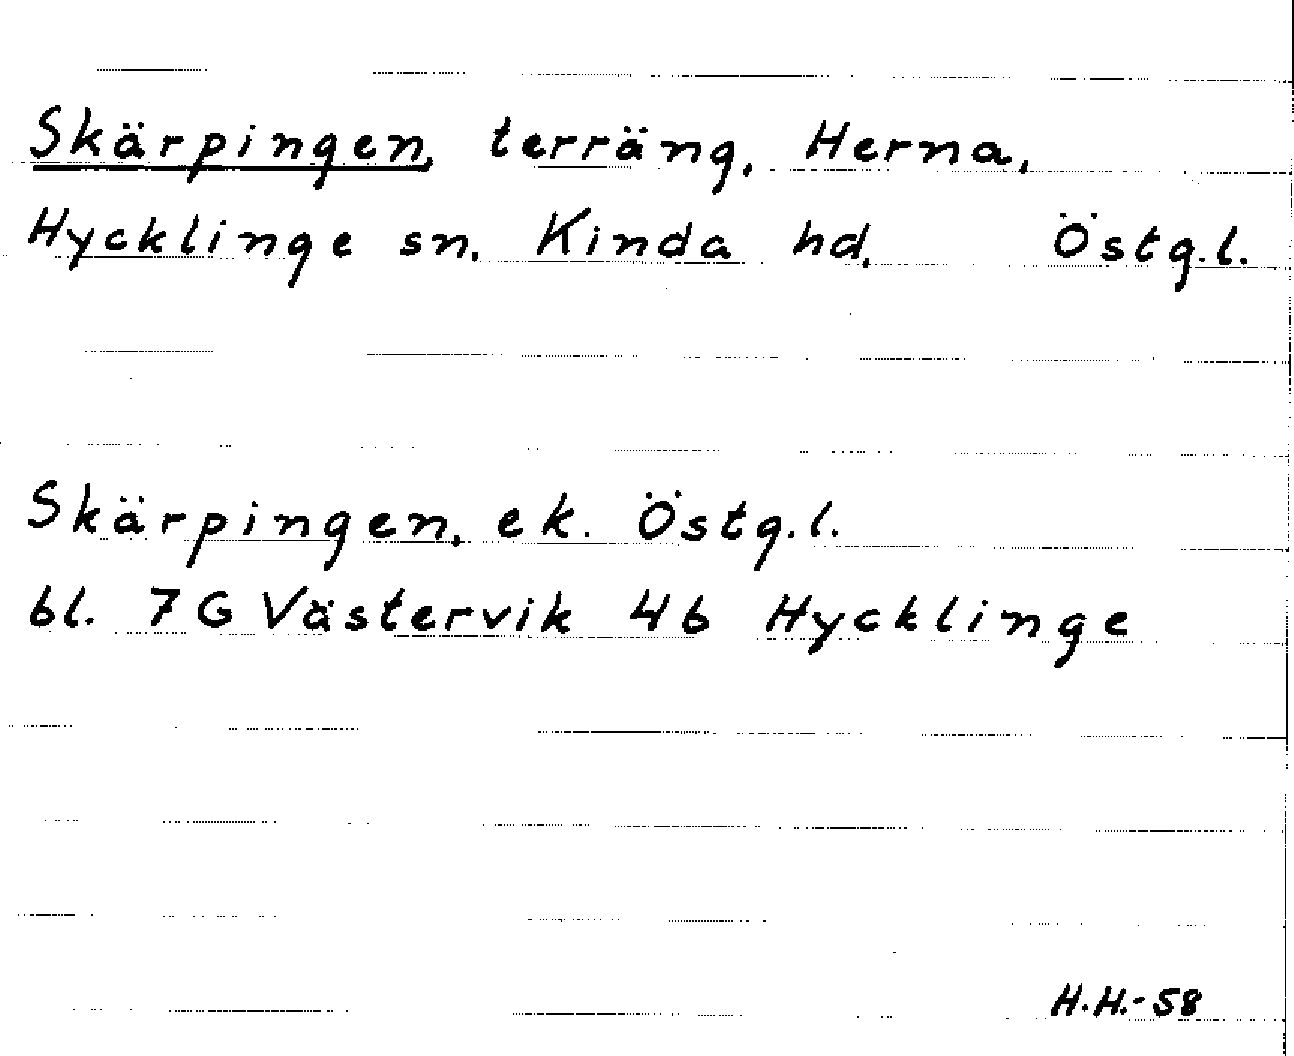 Skärpingen, terräng, Herna,
Hycklinge sn. Kinda hd. Östg.l.
Skärpingen, ek. Östg.l.
bl. 7G Västervik 4b Hycklinge
H.H.-58